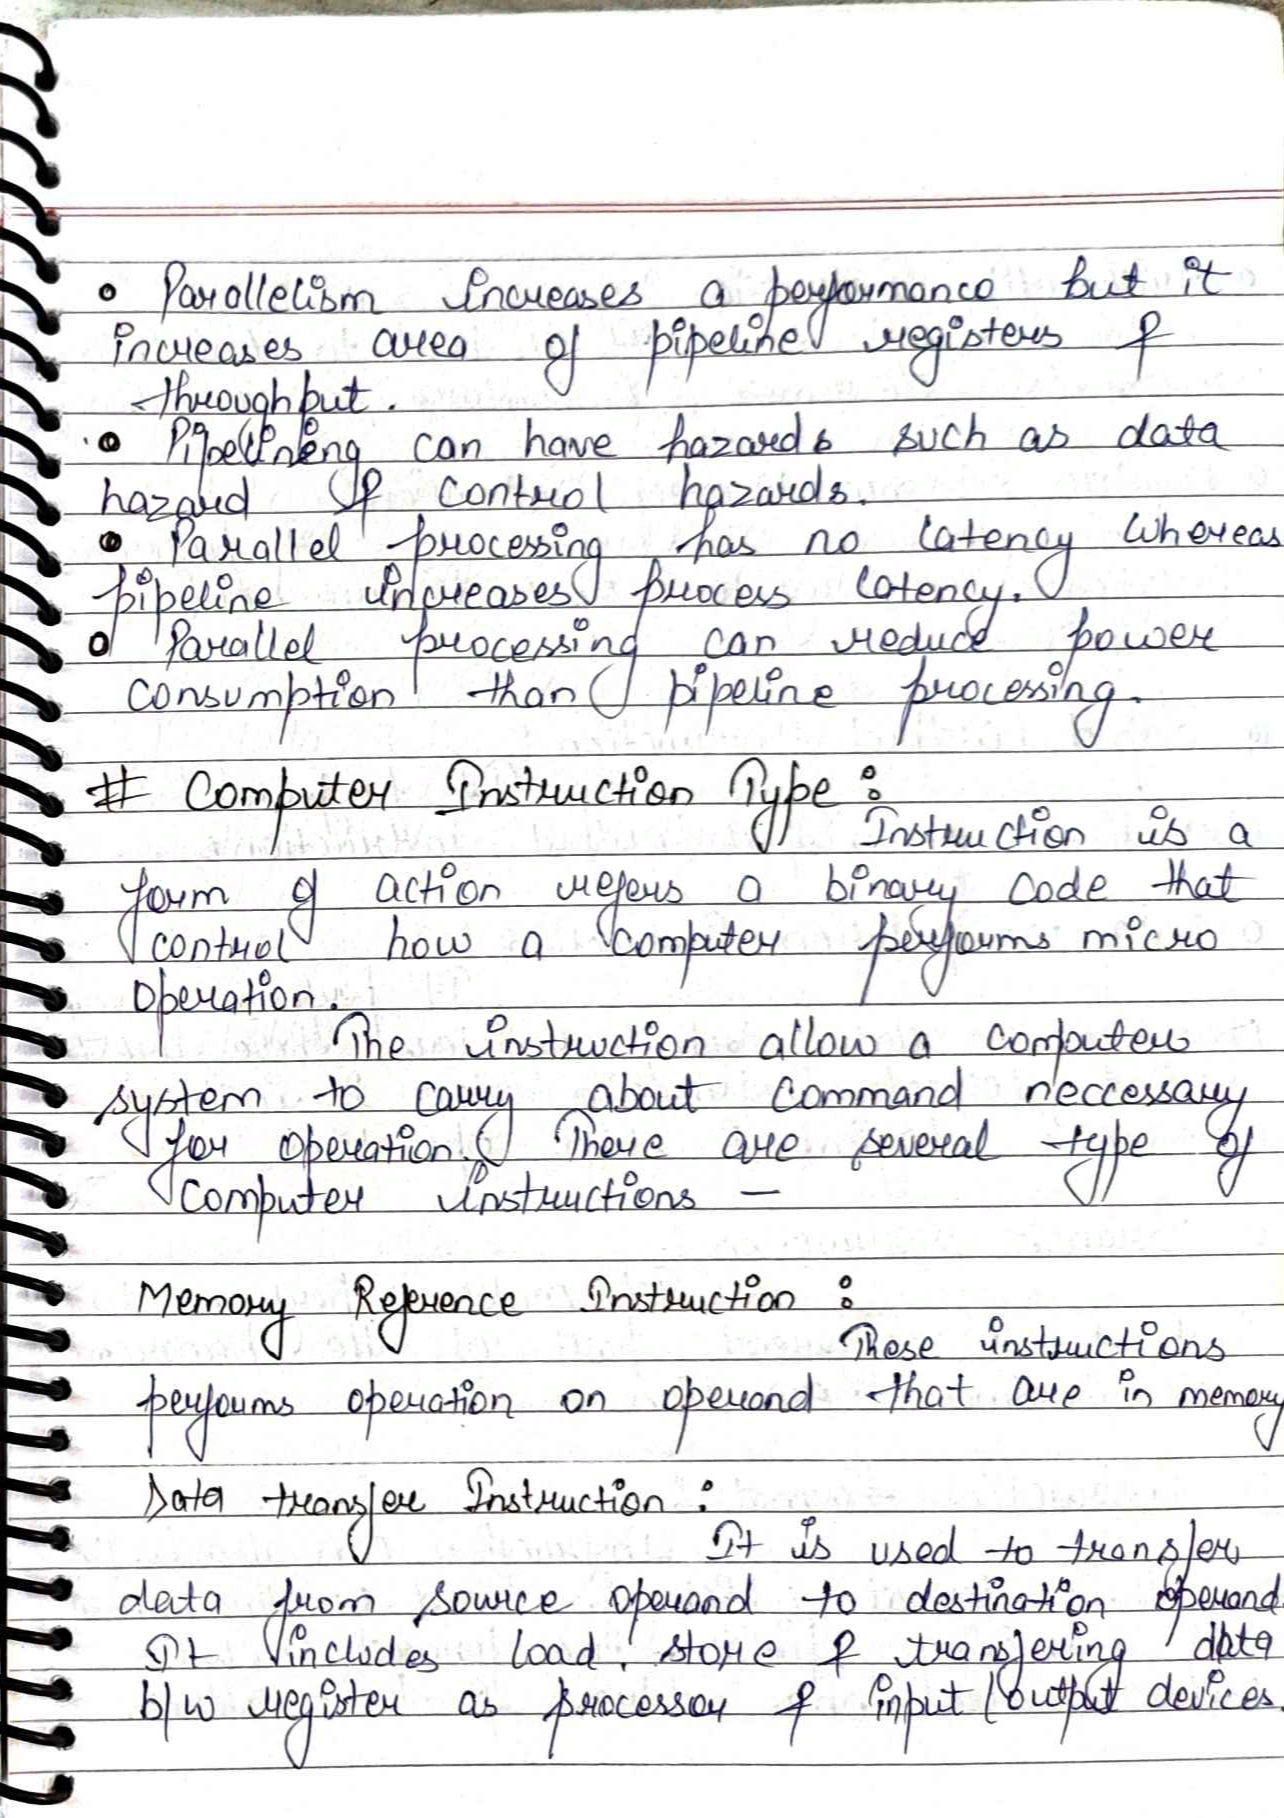 • Parallelism increases a performance but it
increases area of pipeline registers &
throughput.
• Pipelining can have hazards such as data
hazard & control hazards.
• Parallel processing has no latency whereas
pipeline increases process latency.
• Parallel processing can reduce power
consumption than pipeline processing.
# Computer Instruction Type :
Instruction is a
form of action refers a binary code that
control how a computer performs micro
operation.
The instruction allow a computer
system to carry about command neccessary
for operation. There are several type of
computer instructions —
Memory Reference Instruction :
These instructions
performs operation on operand that are in memory
Data transfer Instruction :
It is used to transfer
data from source operand to destination operand.
It includes load, store & transfering data
b/w register as processor & input/output devices.